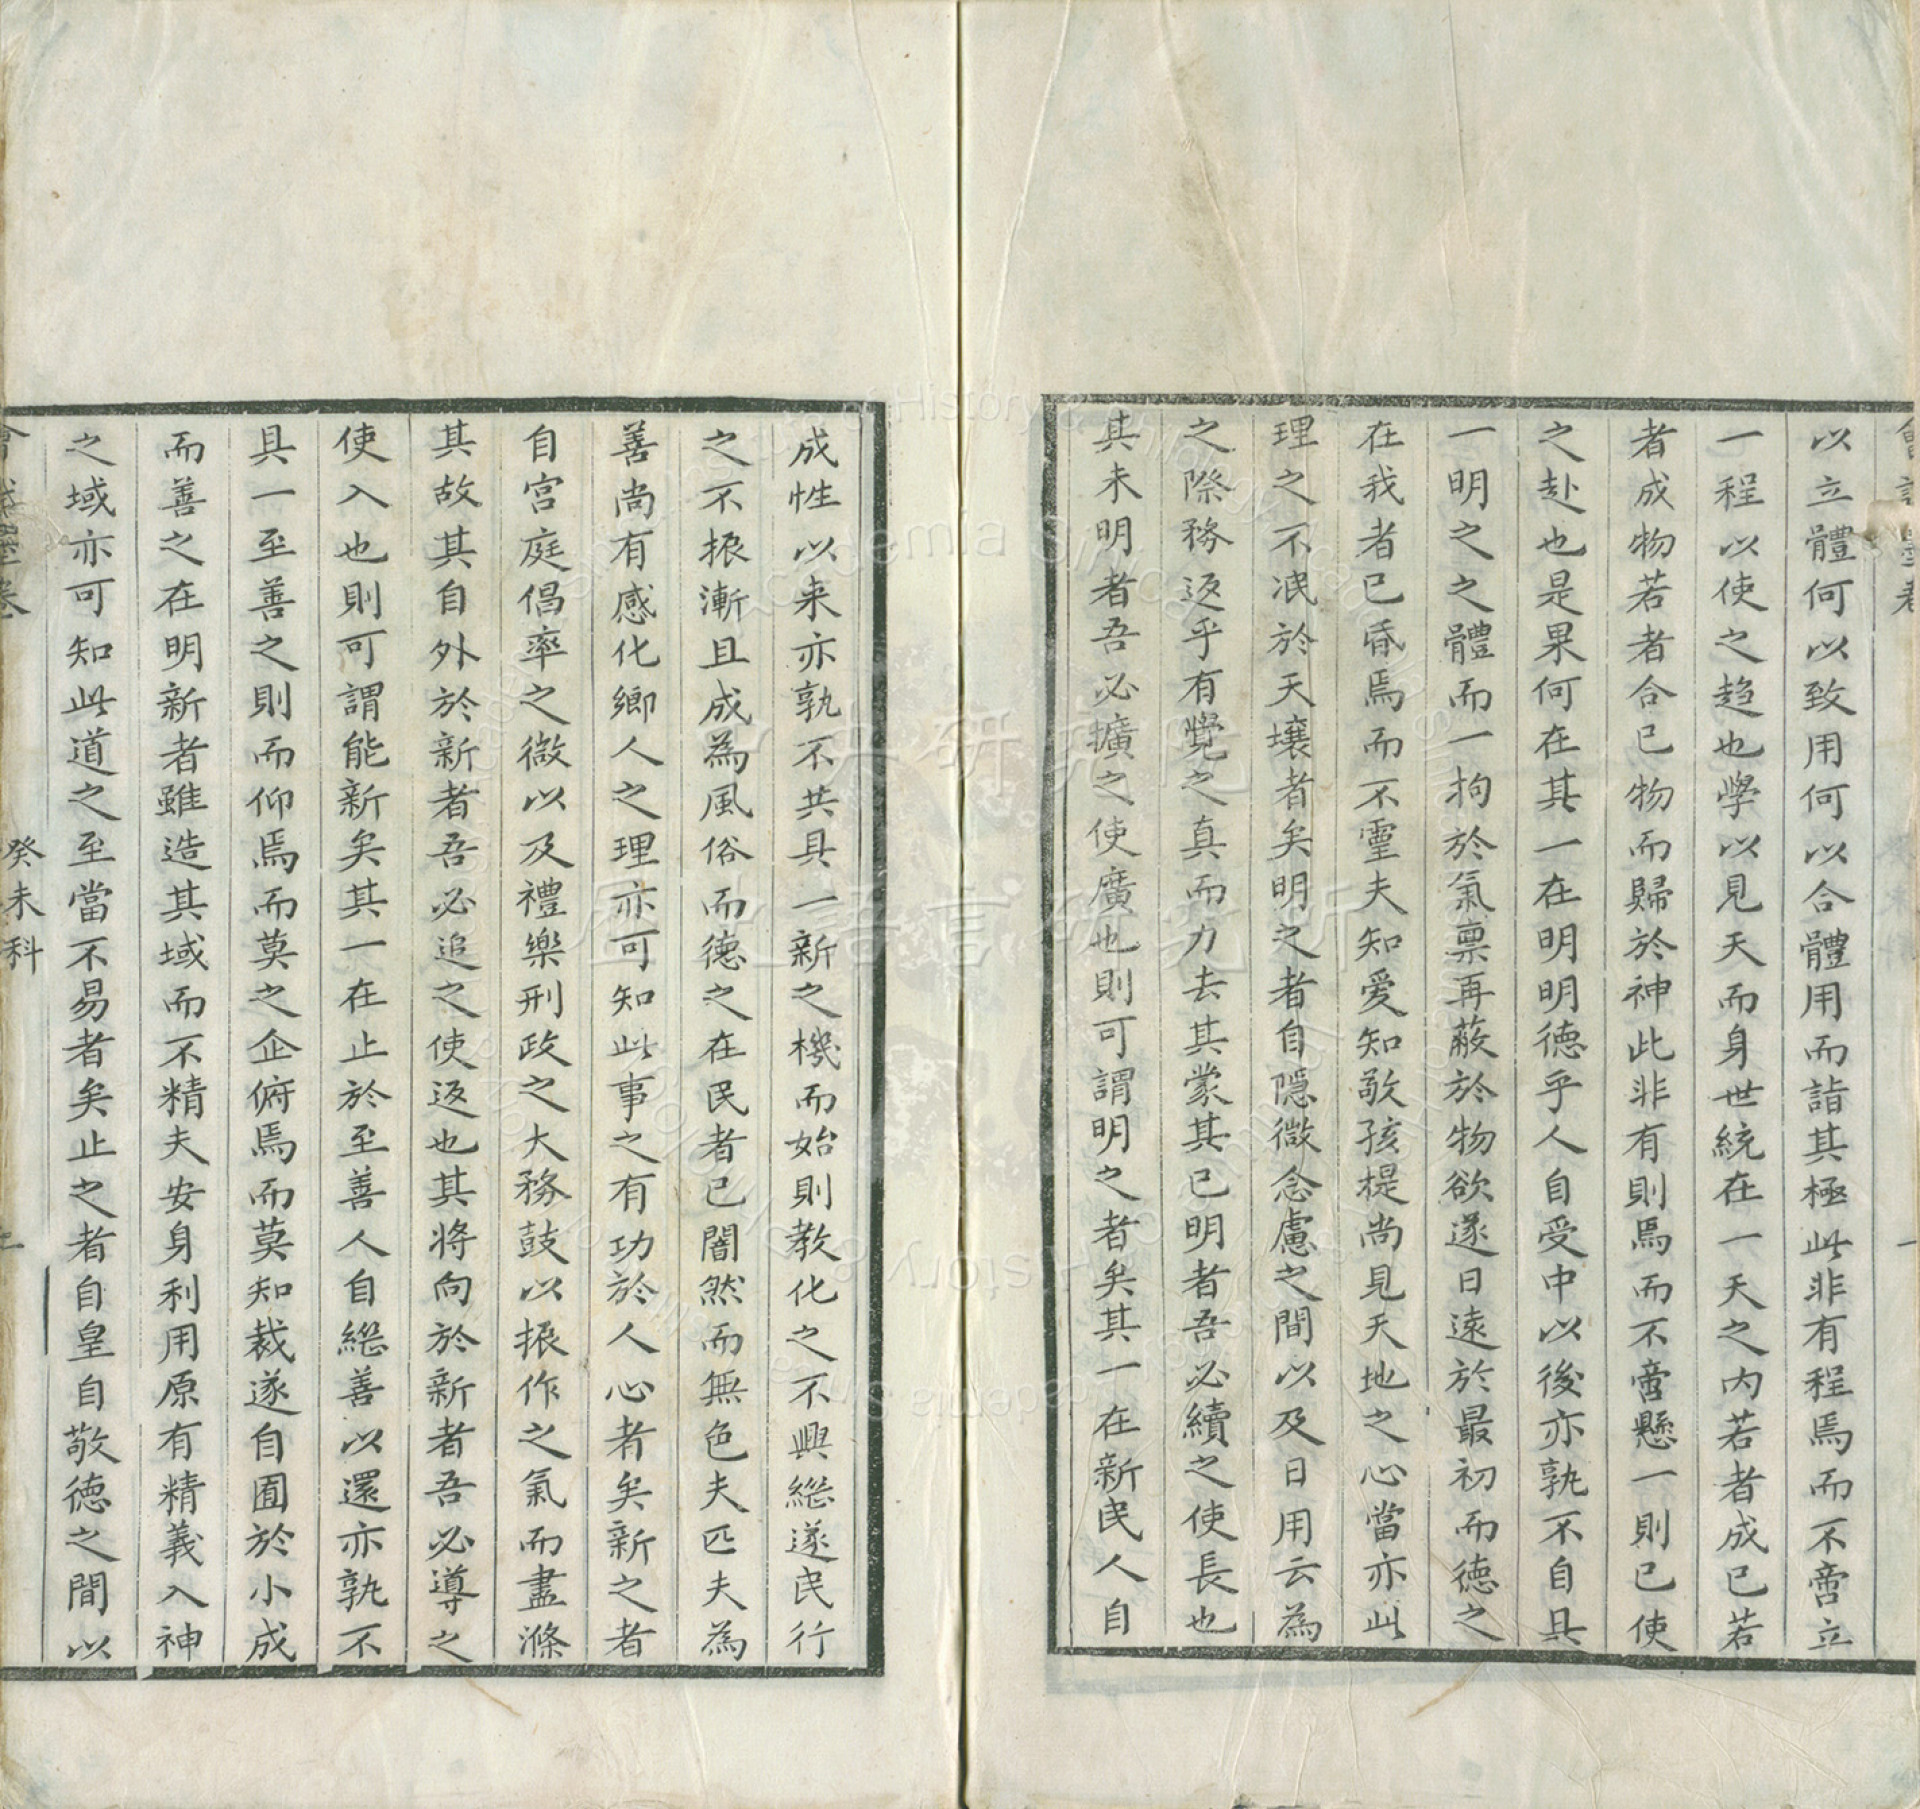 以立體何以致用何以合體用而詣其極此非有程焉而不啻立
一程以使之趨也學以見天而身世統在一天之内若者成己若
者成物若者合己物而歸於神此非有則焉而不啻懸一則已使
之赴也是果何在其一在明明德乎人自受中以後亦孰不自具
一明之之體而一拘於氣禀再蔽於物欲遂日遠於最初而德之
在我者已昏焉而不靈夫知愛知敬孩提尚見天地之心當亦此
理之不泯於天壤者矣明之者自隱微念慮之間以及日用云為
之際務返乎有覺之真而力去其蒙其已明者吾必續之使長也
其未明者吾必擴之使廣也則可謂明之者矣其一在新民人自
成性以来亦孰不共具一新之機而始則教化之不興繼遂民行
之不振漸且成為風俗而德之在民者已闇然而無色夫匹夫為
善尚有感化鄉人之理亦可知此事之有功於人心者矣新之者
自宫庭倡率之微以及禮樂刑政之大務鼓以振作之氣而盡滌
其故其自外於新者吾必追之使返也其將向於新者吾必導之
使入也則可謂能新矣其一在止於至善人自繼善以還亦孰不
具一至善之則而仰焉而莫之企俯焉而莫知裁遂自囿於小成
而善之在明新者雖造其域而不精夫安身利用原有精義入神
之域亦可知此道之至當不易者矣止之者自皇自敬德之間以
癸未科